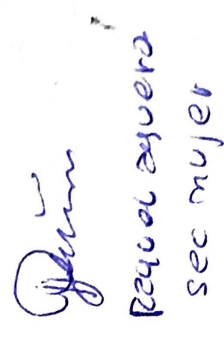 Raquel aguero
sec mujer